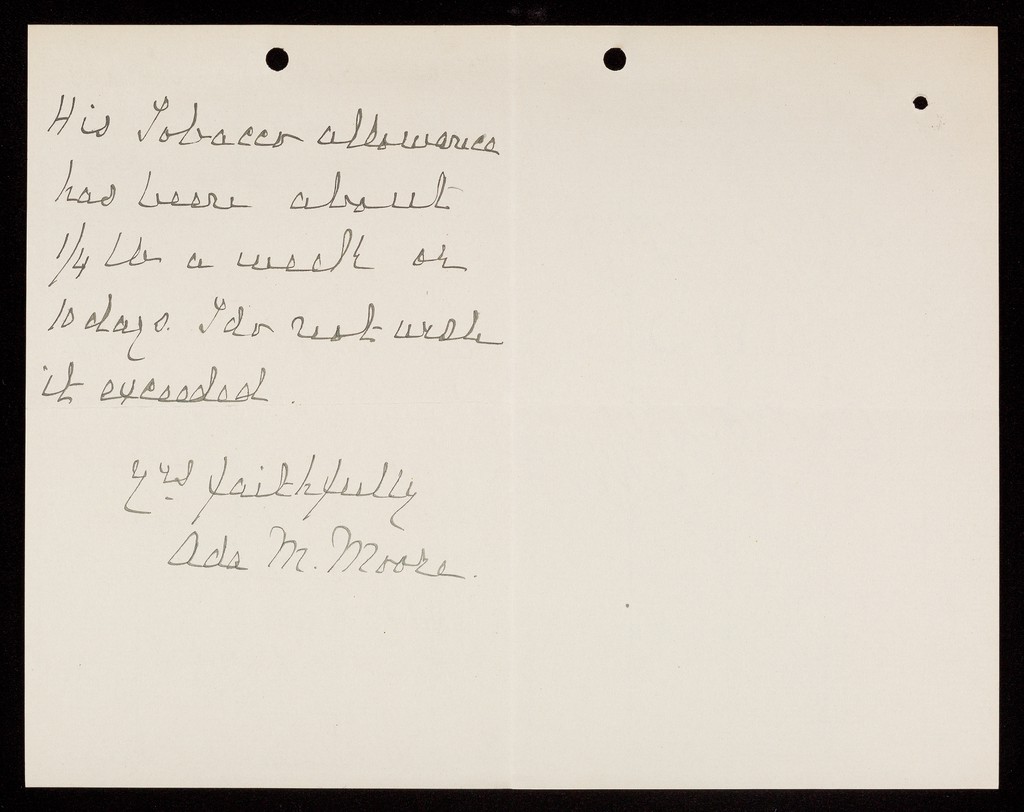 His Tobacco allowance
has been about
1/4 lb a week or
10 days. I do not wish
it exceeded.
Yrs faithfully
Ada M. Moore.